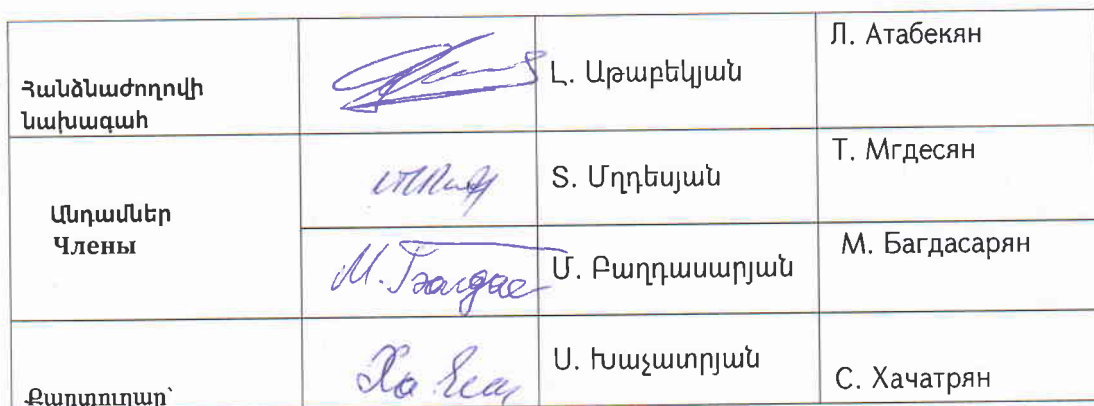 Հանձնաժողովի
նախագահ
Լ. Աթաբեկյան
Л. Атабекян
Անդամներ
Члены
Տ. Մղդեսյան
Т. Мгдесян
М. Багдас
Մ. Բաղդասարյան
М. Багдасарян
Քարտուղար՝
Ս. Խաչատրյան
С. Хачатрян